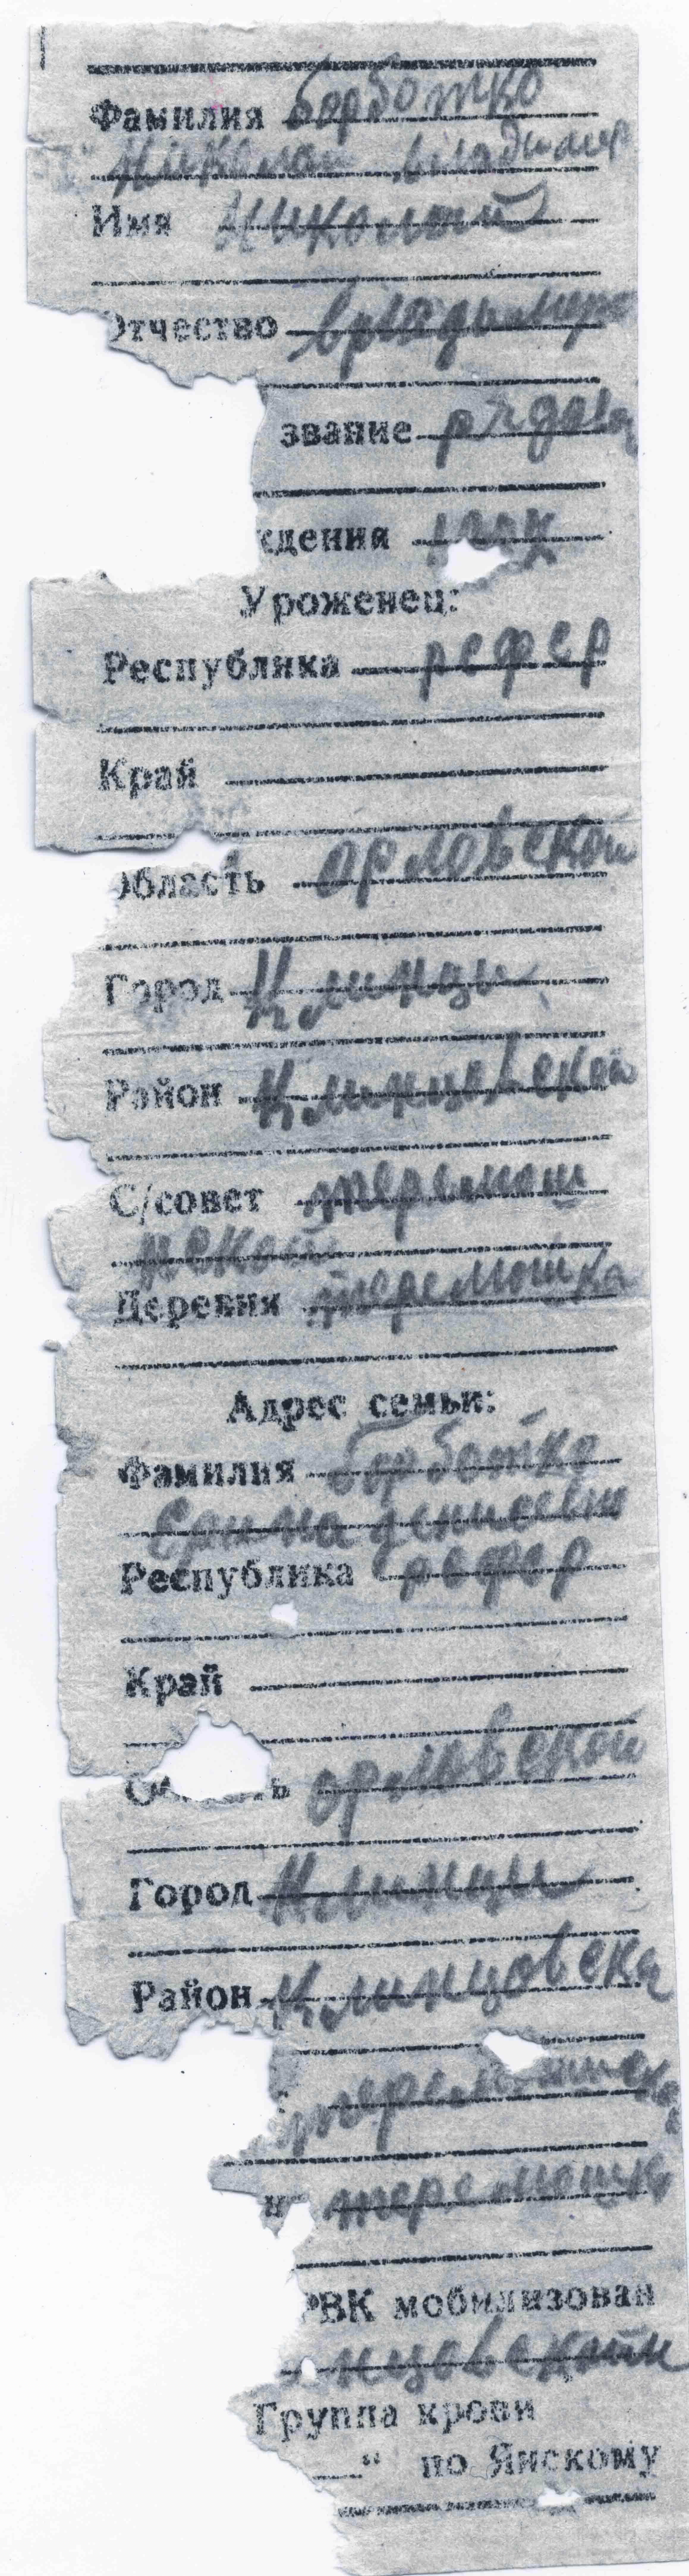 Фамилия Борботко
Николай Владимир
Имя Николай
Отчество Владимиро
звание рядова
ждения
Уроженец:
Республика рсфср
Край
Область орловской
Город Клинцы
Район Клинцовской
С/совет теремош
нской
Деревня теремошка
Адрес семьи:
Фамилия Борботко
денисовны
Республика рсфср
Край
орловской
Город Клинцы
Район Клинцовска
теремошка
РВК мобилизован
нцовской
Группа крови
“ по Янскому